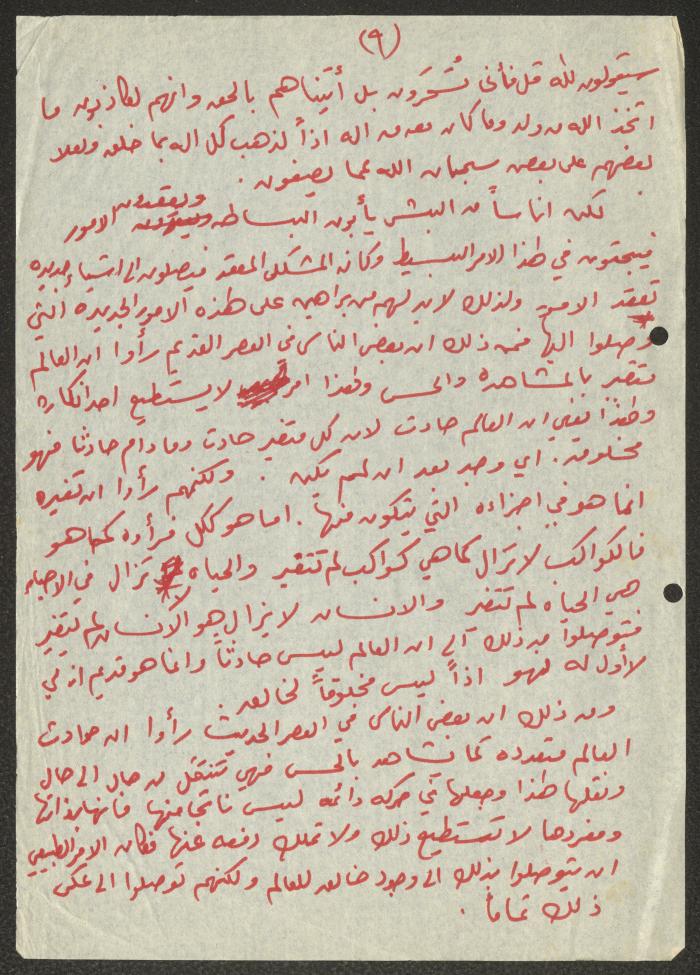 (٩)
سيقولون لله قل فأنى تُسْحَرون بل أتيناهم بالحق وانهم لكاذبون ما
اتخذ الله من ولد وما كان معه من اله اذاً لذهب كل اله بما خلق ولعلا
بعضهم على بعض سبحان الله عما يصفون .
لكن اناساً من البشر يأبون البساطه ويعقدون الامور
فيبحثون في هذا الامر البسيط وكأنه المشكل المعقد فيصلون الى اشياء جديده
تعقد الامور ولذلك لا بد لهم من براهين على هذه الامور الجديده التي
وصلوا اليها فمن ذلك ان بعض الناس في العصر القديم رأوا ان العالم
متغير بالمشاهدة والحس وهذا امر لا يستطيع احد انكاره
وهذا يعني ان العالم حادث لان كل متغير حادث وما دام حادثا فهو
مخلوق . اي وجد بعد ان لم يكن . ولكنهم رأوا ان تغيره
انما هو في اجزاءه التي يتكون منها . اما هو ككل فرأوه كما هو
فالكواكب لا تزال كما هي كواكب لم تتغير والحياه لا تزال في الاحياء
هي الحياه لم تتغير والانسان لا يزال هو الانسان لم يتغير
فتوصلوا من ذلك الى ان العالم ليس حادثاً وانما هو قديم ازلي
لا أول له فهو اذاً ليس مخلوقاً لخالق .
ومن ذلك ان بعض الناس في العصر الحديث رأوا ان حوادث
العالم متعدده كما تشاهد بالحس فهي تنتقل من حال الى حال
ونقلها هذا وجعلها في حركه دائمه ليس ناتجا منها فانها بذاتها
ومفردها لا تستطيع ذلك ولا تملك دفعه عنها فكان الامر الطبيعي
ان يتوصلوا بذلك الى وجود خالق للعالم ولكنهم توصلوا الى عكس
ذلك تماماً .